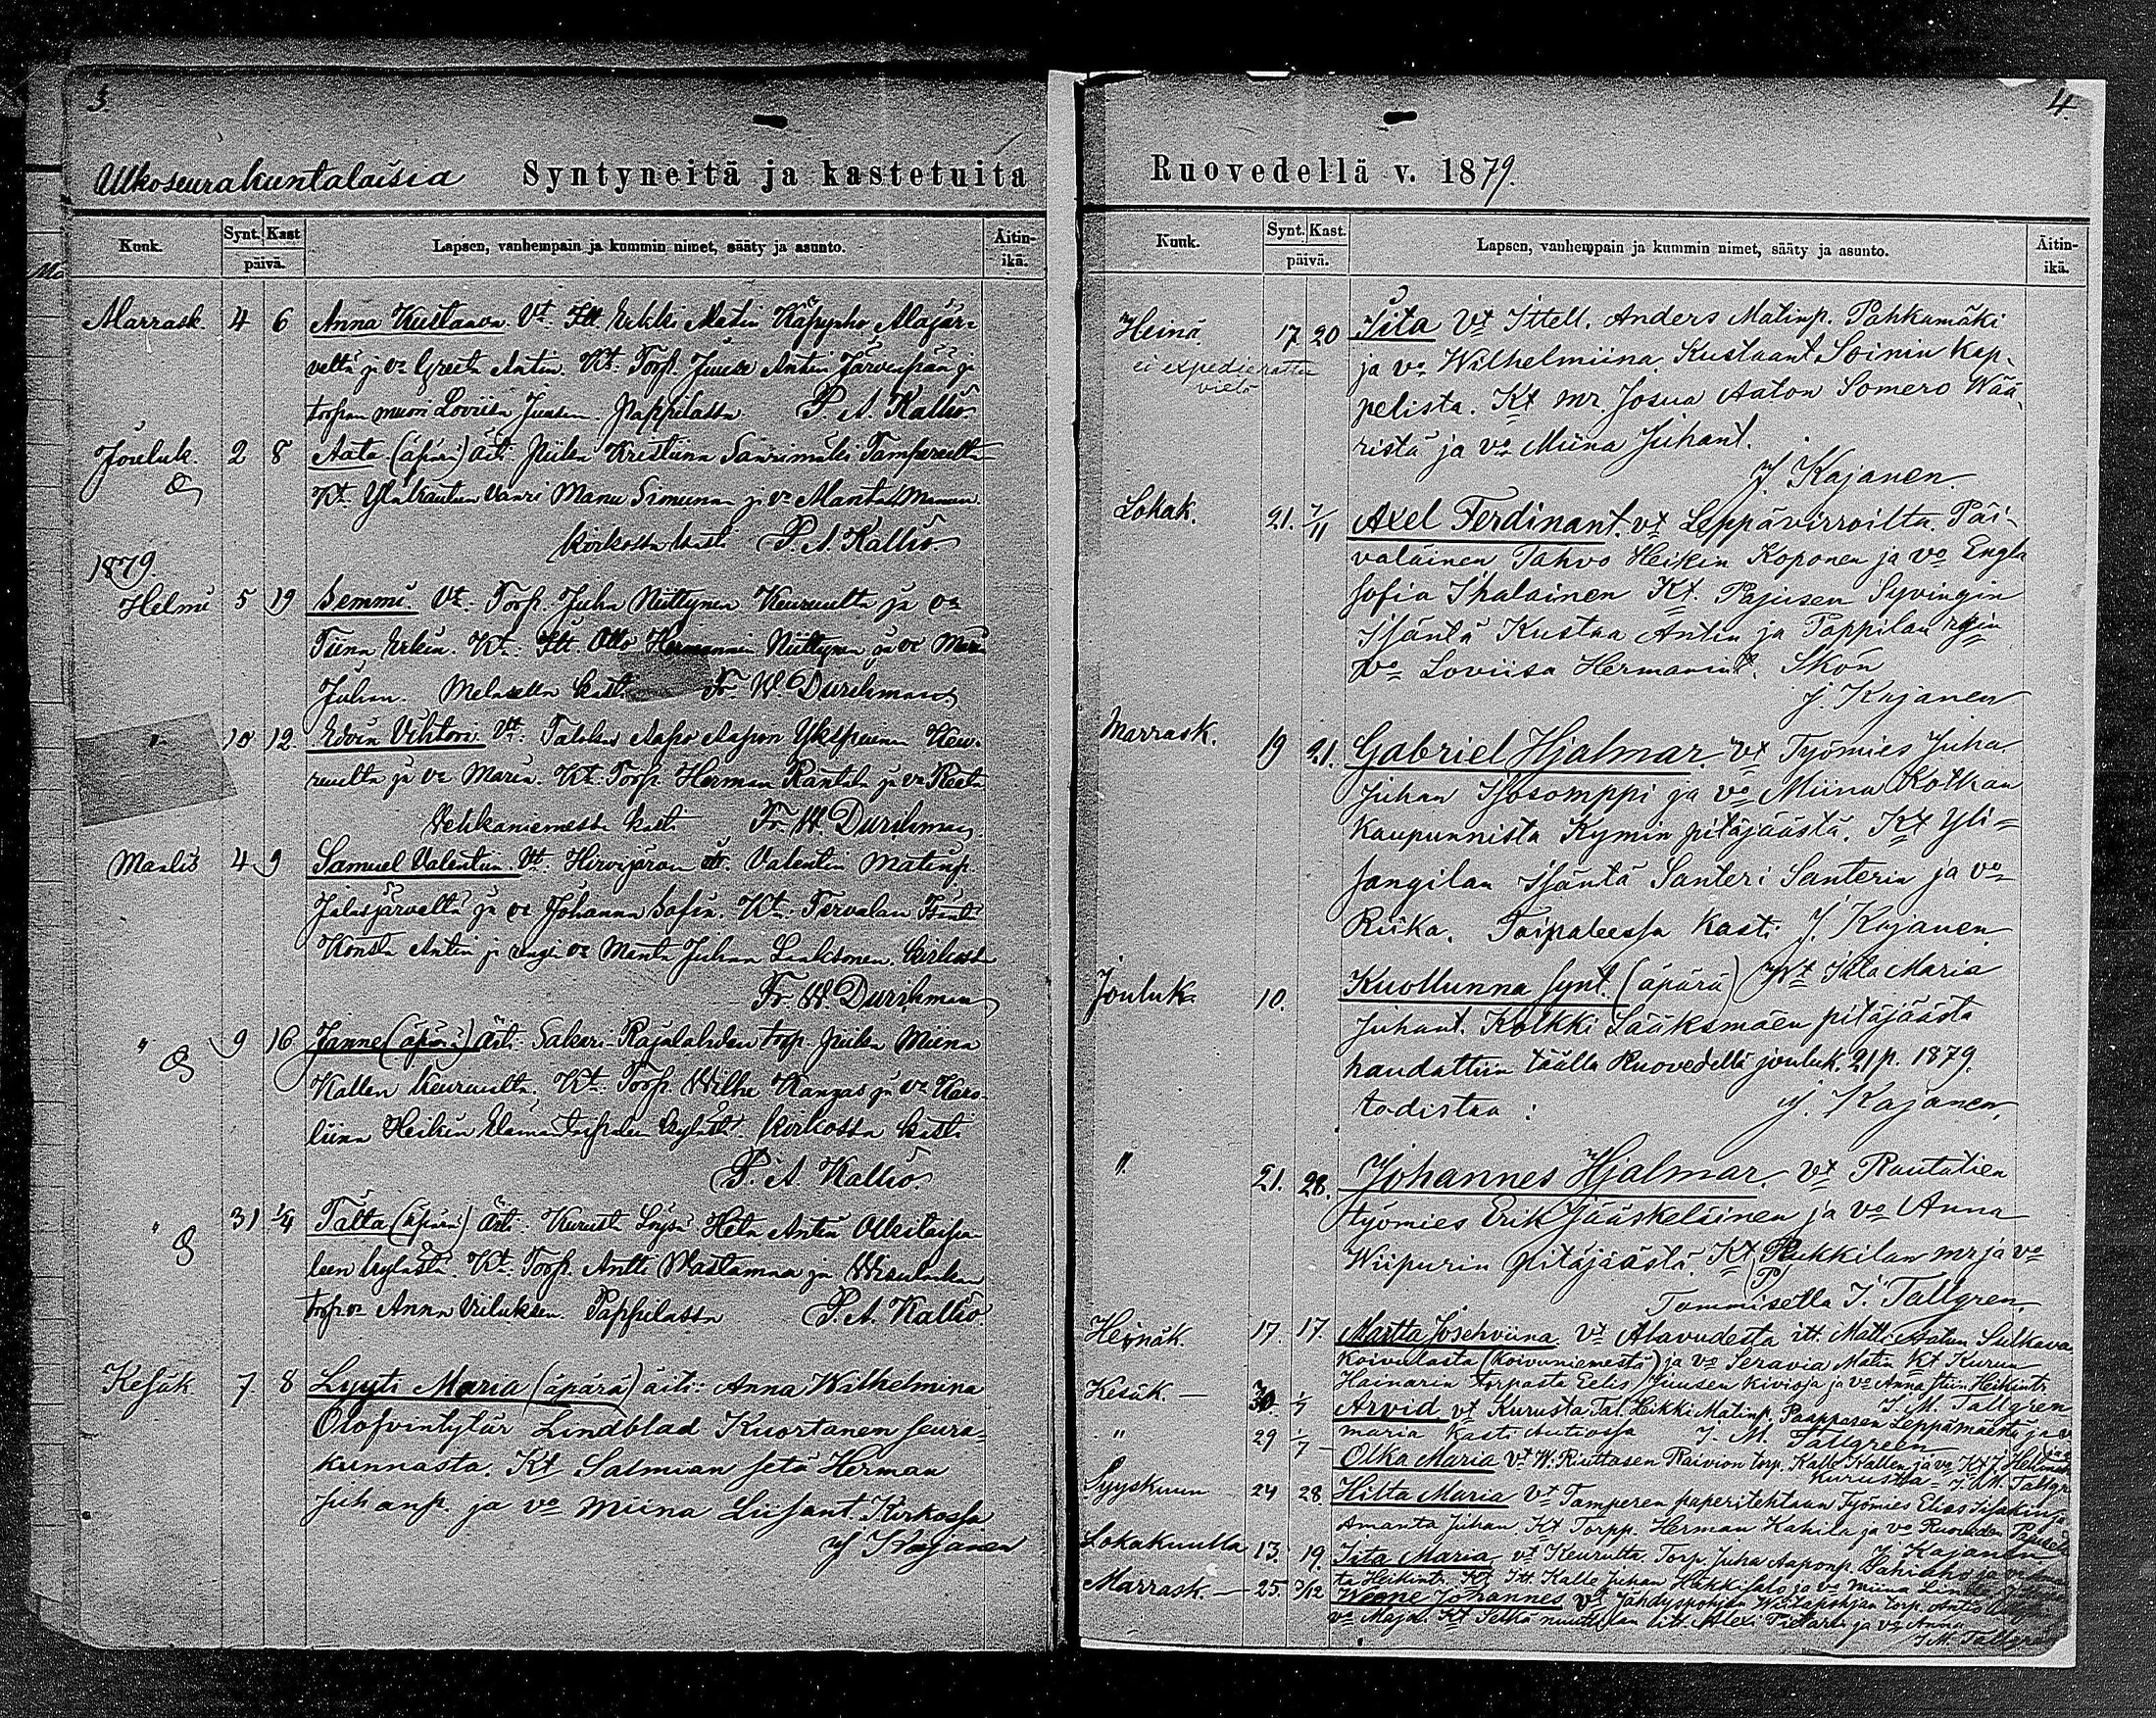 3.
Ulkoseurakuntalaisia Syntyneitä ja kastetuita
Kuuk. Synt. Kast päivä. Lapsen, vanhempain ja kummin nimet, sääty ja asunto. Äitin-ikä.
Marrask. 4 6 Anna Kustaava Vt. Itt. Erkki Matin Käpynho Alajär-
veltä ja vo Greeta Antin. Kt. Torp. Juuse Antin Järvenpään ja
torpan muori Loviisa Juusen. Pappilassa P. A. Kallio
Jouluk. 2 8 Aata (äpärä) äiti Piika Kristiina Saarimäki Tampereelta
Kt. Ylikautun Vaari Manu Simunan ja vo Manta Manun.
Kirkossa kasti P. A. Kallio.
1879
Helmi 5 19 Semmi Vt. Torp. Juha Niittynen Keuruulta ja vo
Tiina Erkin. Kt. Itt. Otto Hermannin Niittynen ja vo Maria
Juhan. kasti Fr. W. Durchman
" 10 12. Edvin Vihtori Vt. Aapo Aapon Keu-
ruulta ja vo Maria. Kt. Torp. Herman Rantala ja vo Reeta
Vehkaniemessä kasti Fr. W. Durchman
Maalis 4 9 Samuel Valentin. Vt. Hirvijärven itt. Valentin Matinp.
Jalasjärveltä ja vo Johanna Sofia. Kt. Tervalan Isäntä
Konsta Antin ja rengin vo Manta Juhan Laaksonen. Kirkossa
Fr. W. Durchman
" 9 16 Janne (äpärä) Äiti Sakari Rajalahden torp. Piika Miina
Kallen Keuruulta, Kt. Torp. Wilhe Kangas ja vo Karo-
liina Heikin kylästä. Kirkossa kasti
P. A. Kallio.
" 31 1/4 Taltta (äpärä) Äiti Kurusta Heta Antin
leen kylästä. Kt. Torp. Antti Wastamaa ja
torp. vo Anna Pappilassa P. A. Kallio.
Kesäk 7. 8 Lyyti Maria (äpärä) äiti: Anna Wilhelmina
Olofvintytär Lindblad Kuortanen seura-
kunnasta. Kt Salmian setä Herman
Juhanp. ja vo Miina Liisant. Kirkossa
J Kajanen
4.
Ruovedellä v. 1879.
Kuuk. Synt. Kast. päivä. Lapsen, vanhempain ja kummin nimet, sääty ja asunto. Äitin-ikä.
Heinä. 17 20 Iita Vt Ittell. Anders Matinp. Pahkamäki
ei expedierattu vielä
ja vo Wilhelmiina Kustaant. Soinin kap-
pelista. Kt mr. Josua Aaton Somero Wää-
ristä ja vo Miina Juhant.
J. Kajanen.
Lokak. 21. 7/11 Axel Ferdinant. vt Leppävirroilta. Päi-
väläinen Tahvo Heikin Koponen ja vo Engla
Sofia Ihalainen Kt. Pajusen Syvingin
Isäntä Kustaa Antin ja Pappilan rgin
vo Loviisa Hermanint. Skön
J. Kajanen
Marrask. 19 21. Gabriel Hjalmar. vt Työmies Juha
Juhan Isosomppi ja vo Miina Kotkan
Kaupunnista Kymin pitäjäästä. Kt Yli-
Jangilan Isäntä Santeri Santerin ja vo
Riika. Toipaleessa kasti J. Kajanen.
Jouluk. 10. Kuollunna synt. (äpärä) Iita Maria
Juhant. Kolkki Sääksmäen pitäjäästä
haudattiin täällä Ruovedellä jouluk. 21 p. 1879.
todistaa: J. Kajanen.
". 21. 28. Johannes Hjalmar. vt Rautatien
työmies Erik Jääskeläinen ja vo Anna
Wiipurin pitäjäästä. Kt Pukkilan mr ja vo
Tommisella J. Tallgren.
Heinäk. 17. 17. Martta Josehviina vt Alavudesta itt. Matti Aatun Sulkava
Koivulasta (Koivuniemestä) ja vo Seravia Matin Kt Kurun
Hainarin torpasta Eelis Juusen Kivioja ja vo Anna Stiin Heikint.
J. M. Tallgren
Kesäk. — 30. 1/7 Arvid vt Kurusta Tal. Heikki Matinp. Paapposen Leppämäestä ja vo
Maria kasti Autiossa J. M. Tallgreen
" 29 1/7 Olka Maria vt W. Riuttasen Raivion torp. Kalle Kallen ja vo Kt J. Helmin
Kurussa J. M. Tallgr
Syyskuun 24 28 Hilta Maria Vt Tamperen paperitehtaan Työmies Elias Iisakin ja
Amanta Juhan. Kt Torpp. Herman Kahila ja vo Ruoveden
J Kajanen
Lokakuulla 13. 19. Iita Maria vt Keurulta Torp. Juha Aaponp.
ta Heikint. Kt Itt. Kalle Juhan Hakkisalo ja vo Miina
Marrask. — 25. 3/12 Weene Johannes vt Jähdyspohjan Wiitapohjan torp. Antto
vo Maja. Kt Selkä itt. Alexi Pietarin ja vo Anna
J. M. Tallgren